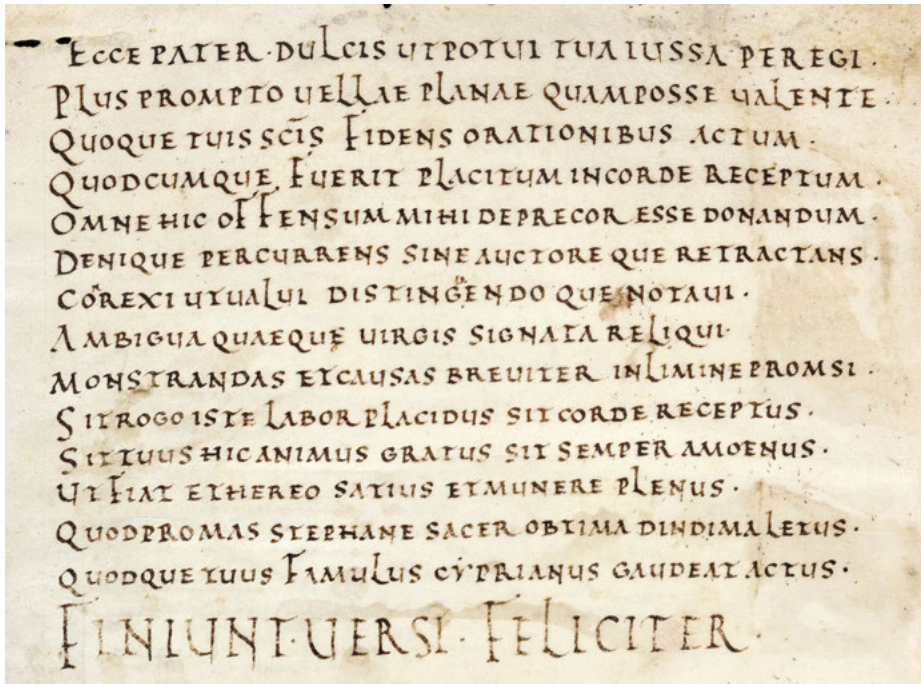 ECCE PATER · DULCIS UT POTUI TUA IUSSA PEREGI ·
PLUS PROMPTO UELLAE PLANAE QUAM POSSE UALENTE ·
QUOQUE TUIS SC̅IS FIDENS ORATIONIBUS ACTUM ·
QUODCUMQUE FUERIT PLACITUM IN CORDE RECEPTUM ·
OMNE HIC OFFENSUM MIHI DEPRECOR ESSE DONANDUM ·
DENIQUE PERCURRENS SINE AUCTORE QUE RETRACTANS ·
COREXI UT UALUI DISTINGENDO QUE NOTAUI ·
AMBIGUA QUAEQUE UIRGIS SIGNATA RELIQUI
MONSTRANDAS ET CAUSAS BREUITER IN LIMINE PROMSI ·
SIT ROGO ISTE LABOR PLACIDUS SIT CORDE RECEPTUS ·
SIT TUUS HIC ANIMUS GRATUS SIT SEMPER AMOENUS ·
UT FIAT ETHEREO SATIUS ET MUNERE PLENUS ·
QUOD PROMAS STEPHANE SACER OBTIMA DINDIMA LETUS ·
QUODQUE TUUS FAMULUS CYPRIANUS GAUDEAT ACTUS ·
FINIUNT · UERSI · FELICITER ·